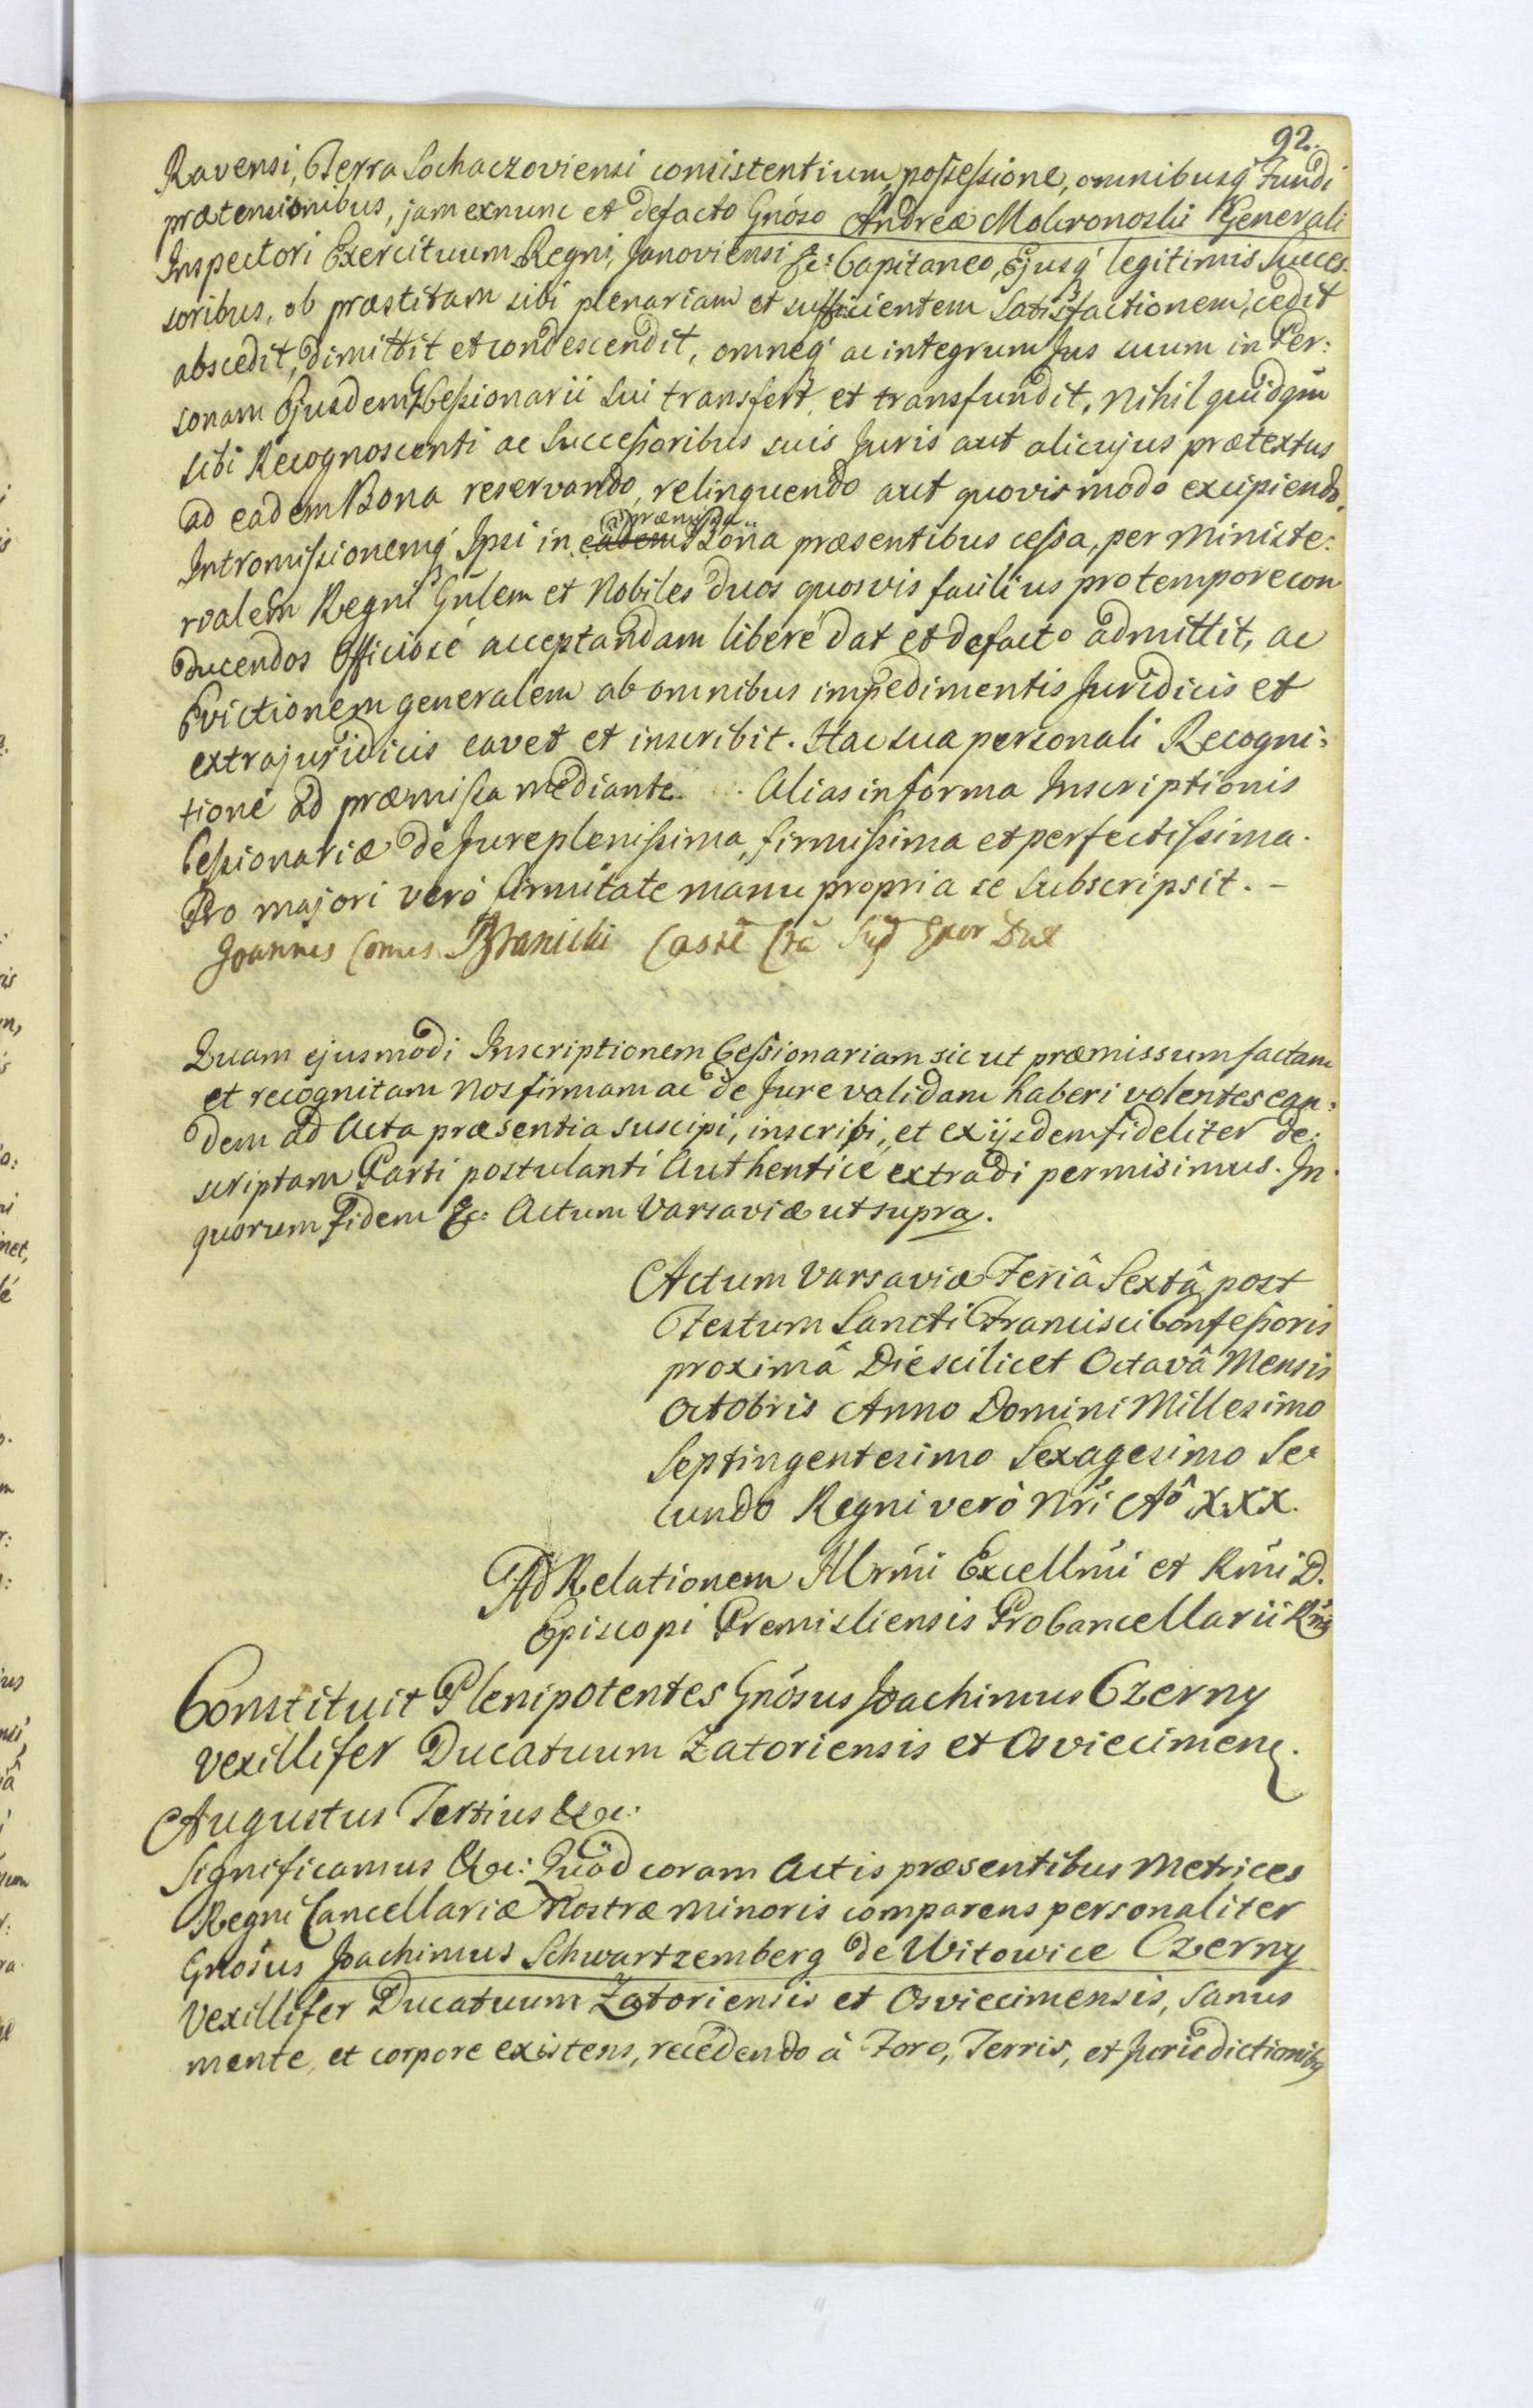 92.
Ravensi, Terra Sochaczoviensi consistentium, possessione, omnibusq́ Fundi
prætensionibus, jam exnunc et defacto Gnóso Andreæ Mokronoski Generali
Inspectori Exercituum Regni, Janoviensi &c: Capitaneo, Ejusq́ legitimis Succes-
soribus, ob præstitam sibi plenariam et sufficientem Satisfactionem, cedit
abscedit, dimittit et condescendit, omneq́ ac integrum Jus suum in Per:
sonam Ejusdem Cessionarii Sui transfert et transfundit, nihil quidqm̃
sibi Recognoscenti ac Successoribus suis Juris aut alicujus prætextus
ad eadem Bona reservando, relinquendo aut quovis modo excipiendo,
Intromissionemq́ Ipsi in eadem præmissa Bona præsentibus cessa, per Ministe:
rialem Regni Gńlem et Nobiles Duos quosvis facilius pro tempore con
ducendos Officiosé acceptandam liberé dat et defacto admittit, ac
Evictionem generalem ab omnibus impedimentis Juridicis et
extrajuridicis cavet et inscribit. Hac sua personali Recogni:
tione ad præmissa mediante. Alias in forma Inscriptionis
Cessionariæ de Jure plenissima, firmissima et perfectissima.
Pro majori veró firmitate manu propria se Subscripsit. –
Joannes Comes Branicki
Quam ejusmodi Inscriptionem Cessionariam sic ut præmissum factam
et recognitam Nos firmam ac de Jure validam haberi volentes ean:
dem ad Acta præsentia suscipi, inscribi, et ex ijsdem fideliter de:
scriptam Parti postulanti Authenticé extradi permisimus. In
quorum Fidem &c: Actum Varsaviæ ut supra.
Actum Varsaviæ Feriâ Sextâ post
Festum Sancti Francisci Confessoris
proximâ Die scilicet Octavâ Mensis
Octobris Anno Domini Millesimo
Septingentesimo Sexagesimo Se:
cundo Regni verò Nri Aô XXX.
Ad Relationem Illrmi Excellmi et Rmi D.
Episcopi Premisliensis ProCancellarii Rni
Constituit Plenipotentes Gnósus Joachimus Czerny
Vexillifer Ducatuum Zatoriensis et Osviecimen.
Augustus Tertius &c:
Significamus &c: Quod coram Actis præsentibus Metrices
Regni Cancellariæ Nostræ Minoris comparens personaliter
Gnosus Joachimus Schwartzemberg de Witowice Czerny
Vexillifer Ducatuum Zatoriensis et Osviecimensis, Sanus
mente, et corpore existens, recedendo à Foro, Terris, et Jurisdictionibq